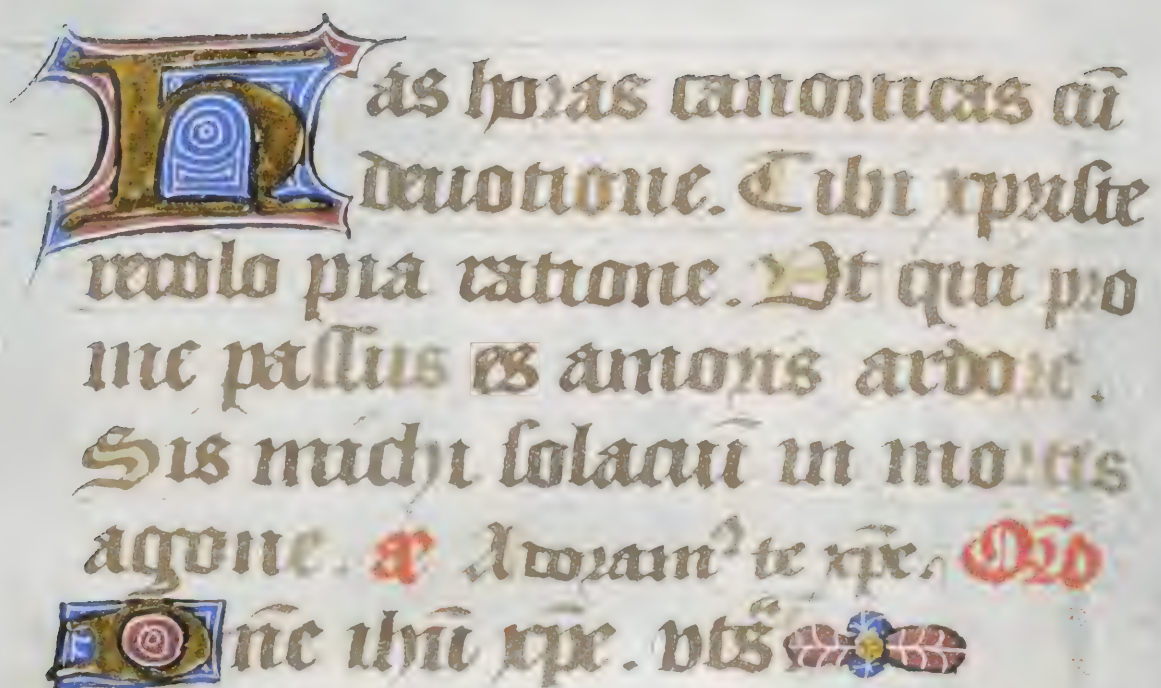 Has horas canonicas cū
deuotione. Tibi xpriste
recolo pia ratione. Vt qui pro
me passus es amoris ardore.
Sis michi solaciū in mortis
agone. Adoram⁹ te xp̄e. Or̄o
Dn̄e ihū xp̄e. vt s̄